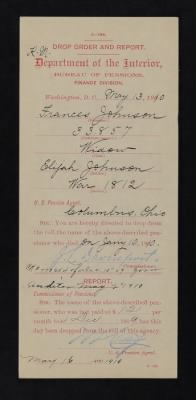 DROP ORDER AND REPORT.
Department of the Interior,
BUREAU OF PENSIONS,
FINANCE DIVISION.
Washington, D. C., May 13, 1910
Frances Johnson
33857
Widow
Elijah Johnson
War 1812
U. S. Pension Agent,
Columbus, Ohio
SIR: You are hereby directed to drop from
the roll the name of the above-described pensioner
who died on Jany 10, 1910.
REPORT.
Auditor May 1910
Commissioner of Pensions:
SIR: The name of the above-described pensioner,
who was paid at $12 per
month to Dec 1909 has this
day been dropped from the roll of this agency.
U. S. Pension Agent.
May 16 1910